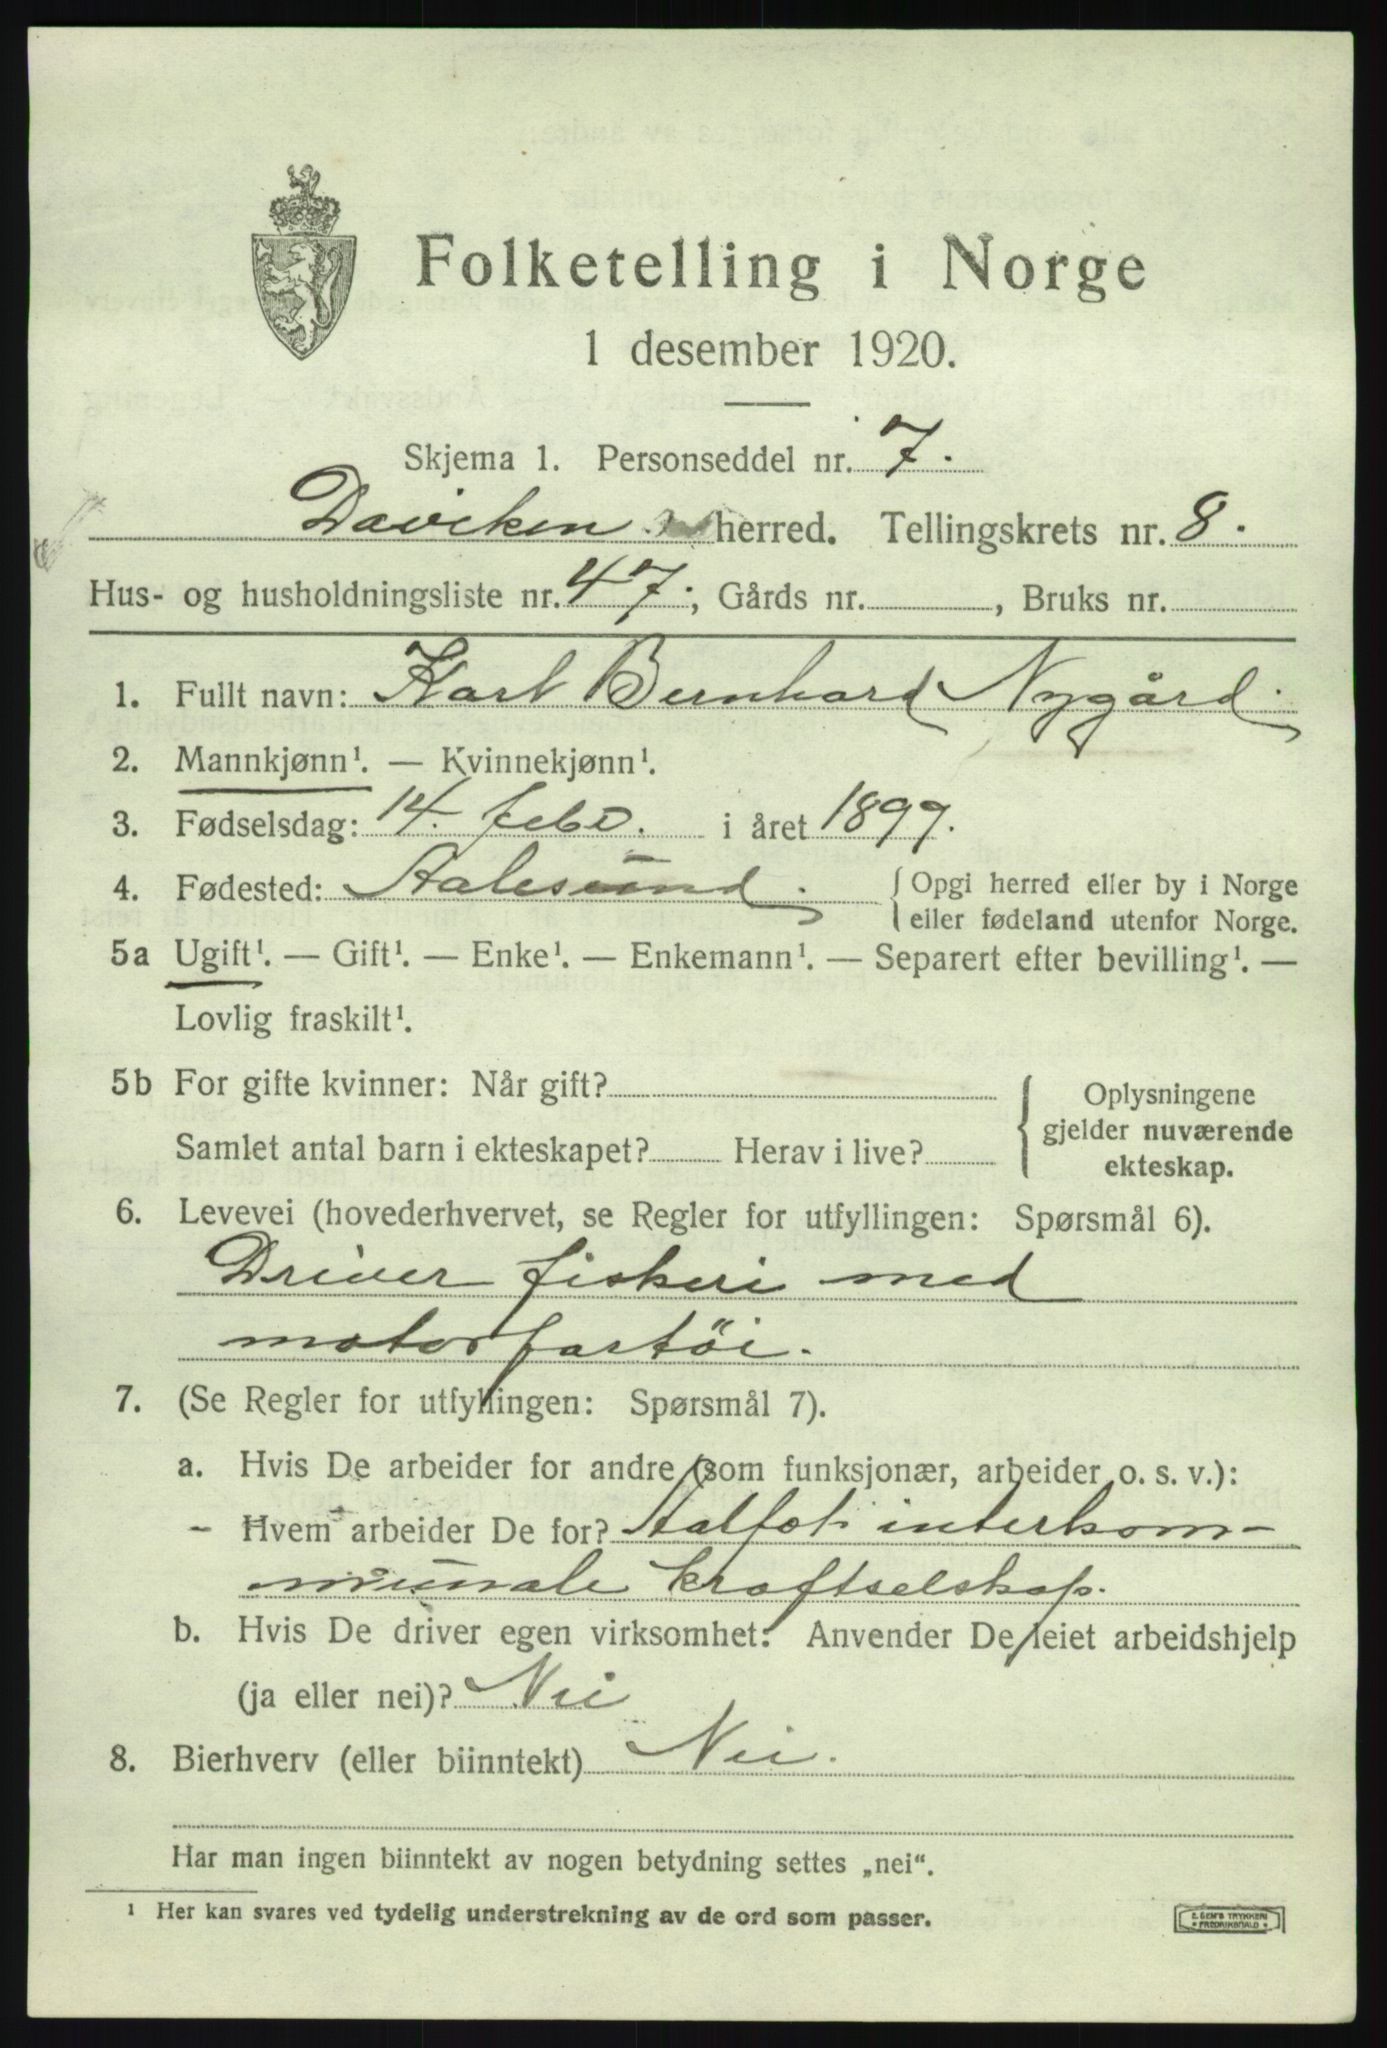 Folketelling i Norge
1 desember 1920.
Skjema 1. Personseddel nr. 7.
Daviken herred. Tellingskrets nr. 8.
Hus- og husholdningsliste nr. 47; Gårds nr. , Bruks nr.
1. Fullt navn: Karl Bernhard Nygård.
2. Mannkjønn¹. — Kvinnekjønn¹.
3. Fødselsdag: 14. febr. i året 1899.
4. Fødested: Aalesund. { Opgi herred eller by i Norge
eller fødeland utenfor Norge.
5a Ugift¹. — Gift¹. — Enke¹. — Enkemann¹. — Separert efter bevilling¹. —
Lovlig fraskilt¹.
5b For gifte kvinner: Når gift? { Oplysningene
gjelder nuværende
Samlet antal barn i ekteskapet? Herav i live?
ekteskap.
6. Levevei (hovederhvervet, se Regler for utfyllingen: Spørsmål 6).
Driver fiskeri med
motorfartöi.
7. (Se Regler for utfyllingen: Spørsmål 7).
a. Hvis De arbeider for andre (som funksjonær, arbeider o. s. v.):
- Hvem arbeider De for? Aalfot interkom-
munale kraftselskap.
b. Hvis De driver egen virksomhet: Anvender De leiet arbeidshjelp
(ja eller nei)? Nei
8. Bierhverv (eller biinntekt) Nei.
Har man ingen biinntekt av nogen betydning settes „nei“.
¹ Her kan svares ved tydelig understrekning av de ord som passer.
E. SEM'S TRYKKERI
FREDRIKSHALD